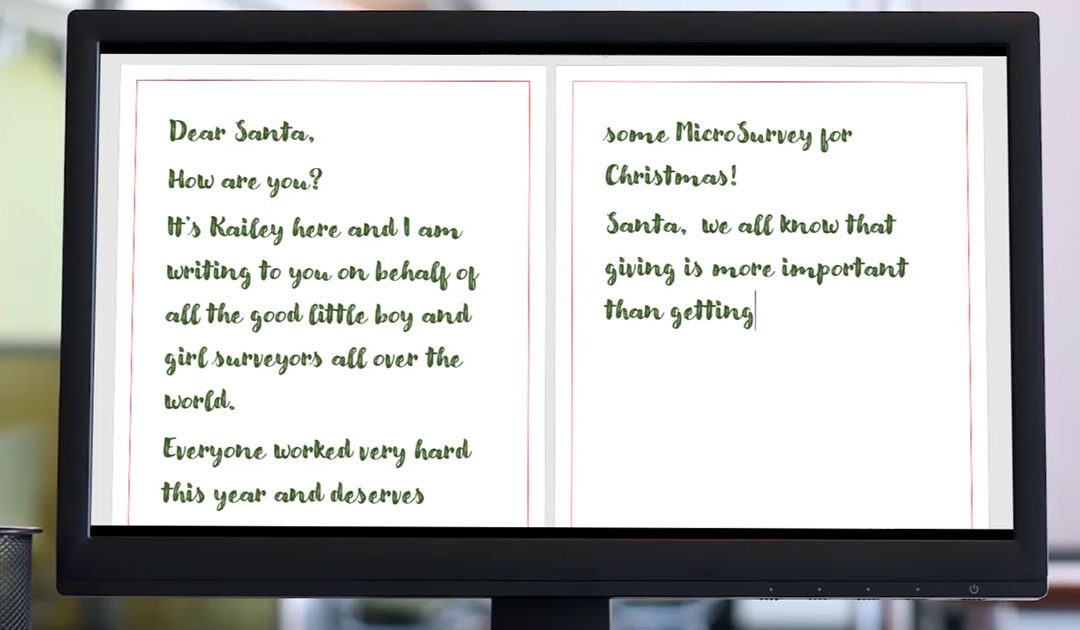 Dear Santa,
How are you?
It's Kailey here and I am
writing to you on behalf of
all the good little boy and
girl surveyors all over the
world.
Everyone worked very hard
this year and deserves
some MicroSurvey for
Christmas!
Santa, we all know that
giving is more important
than getting